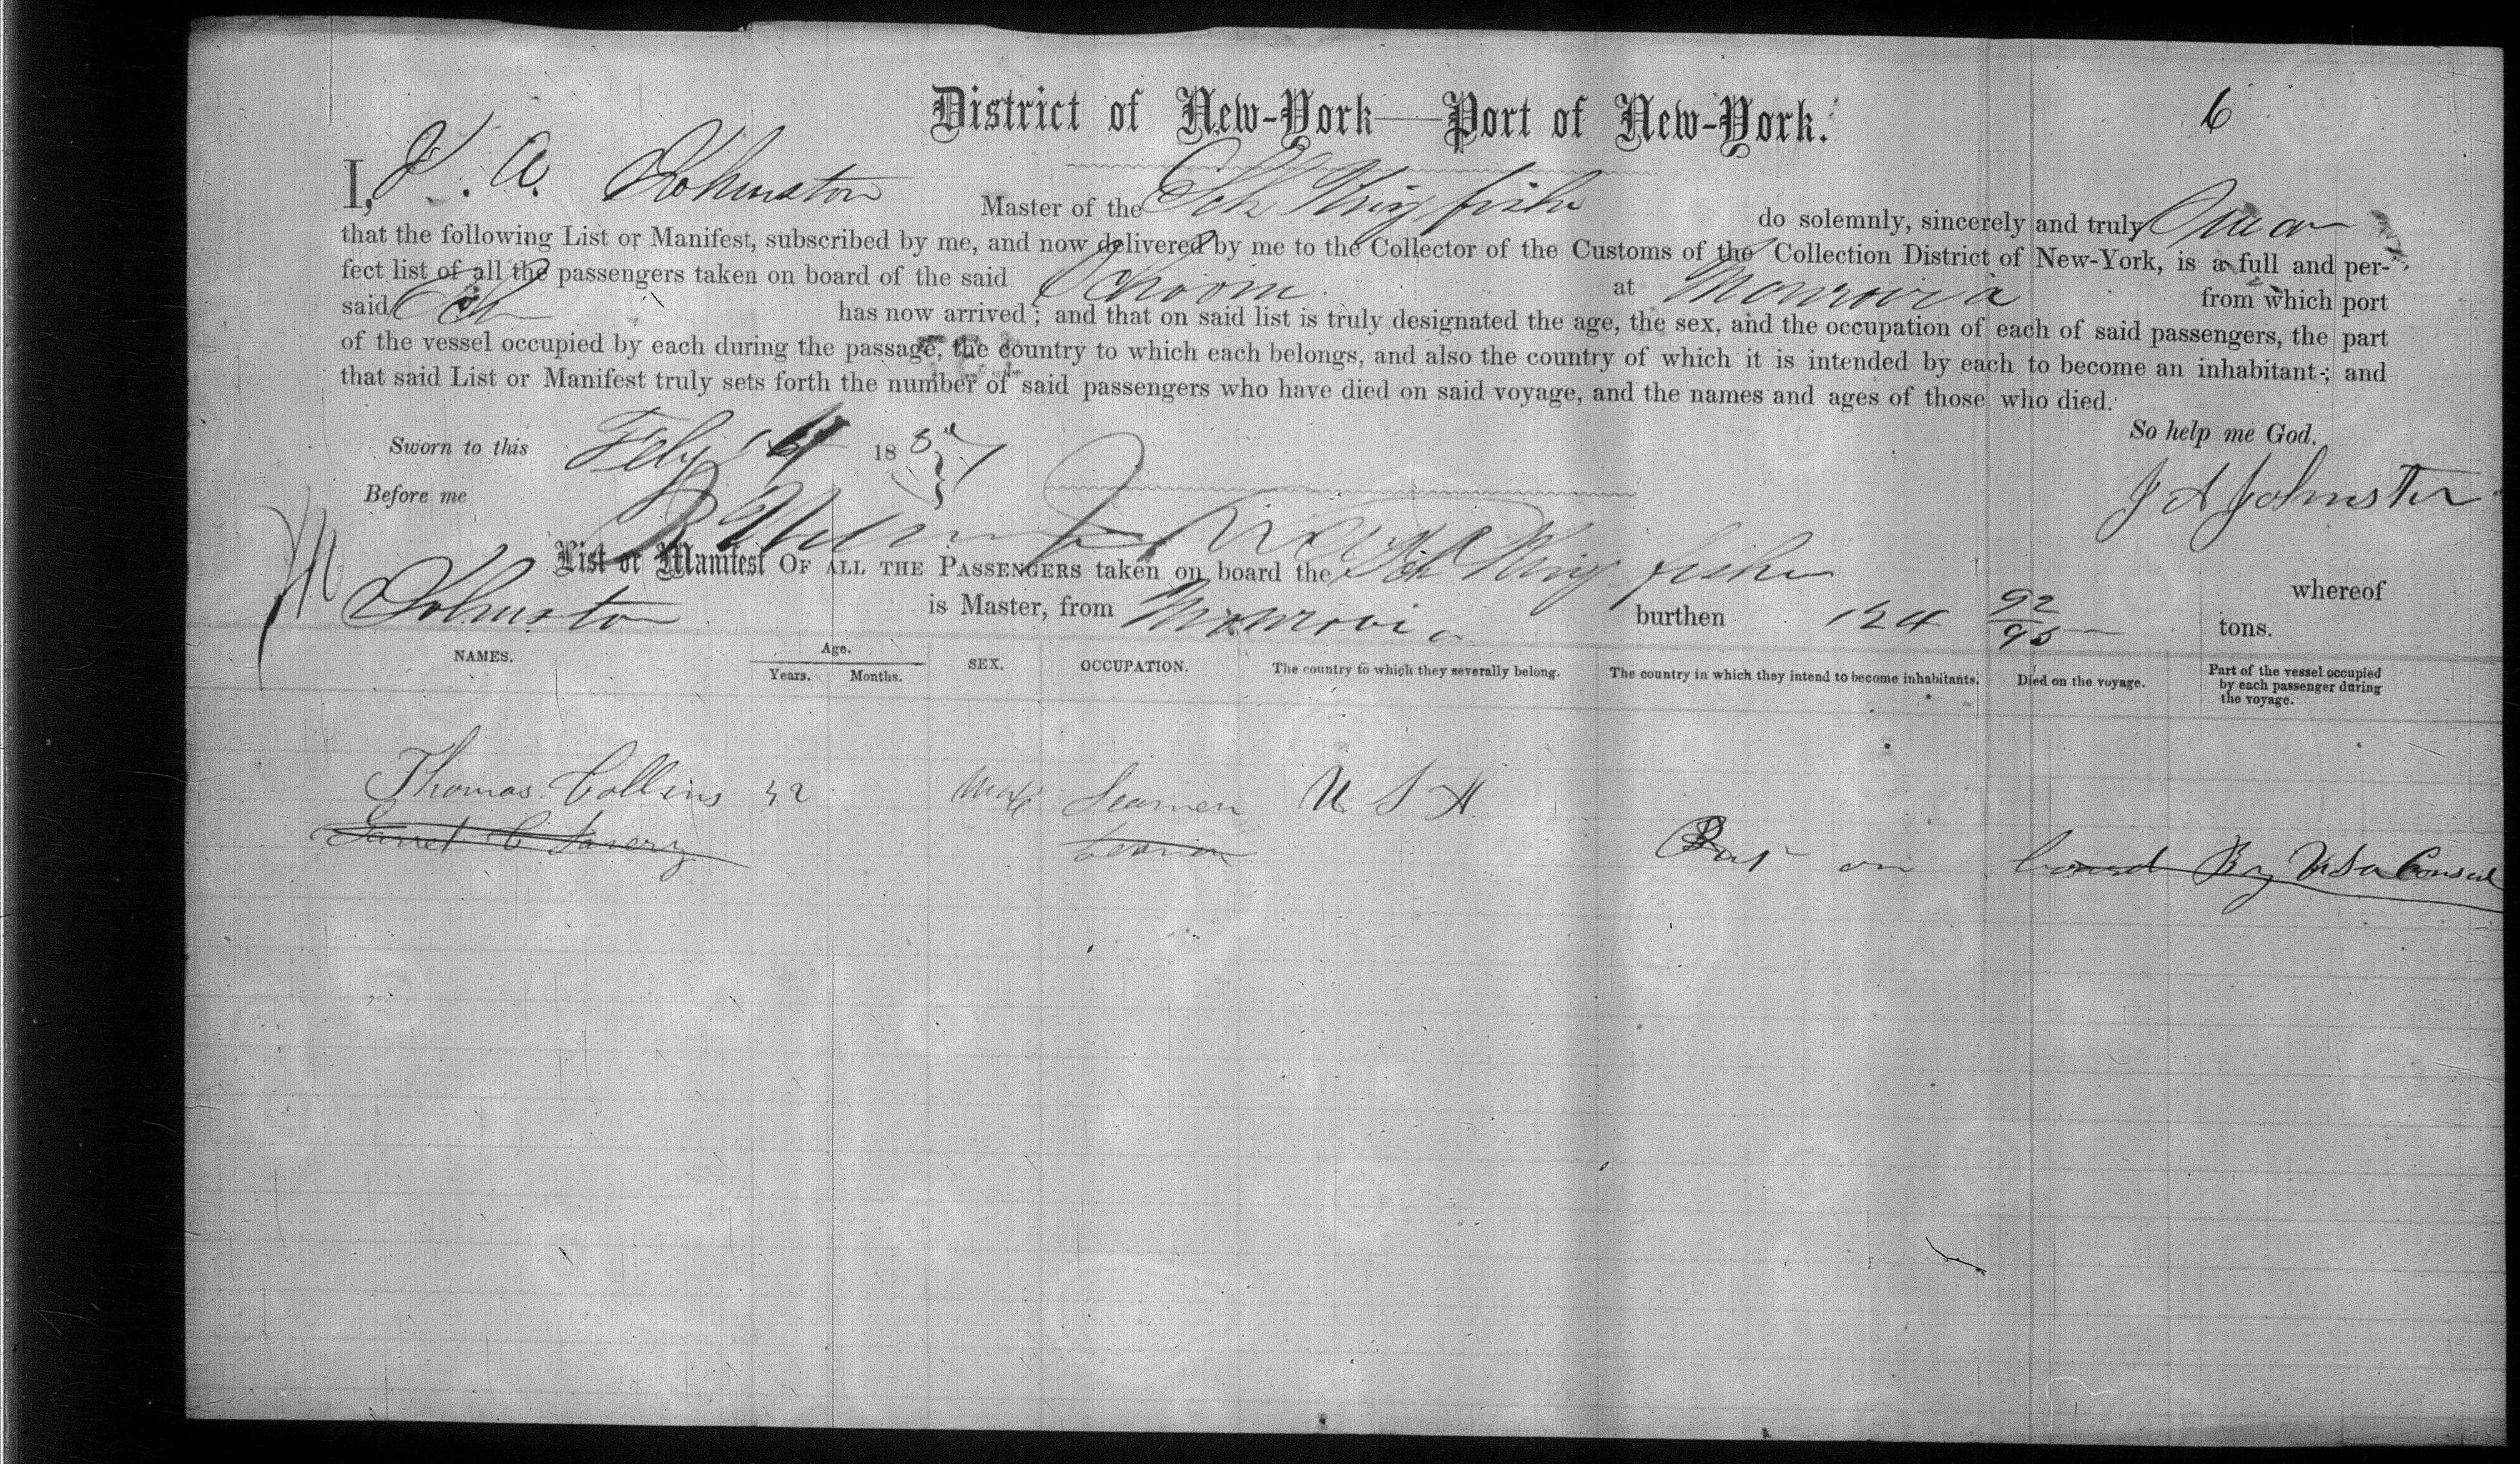 District of New-York—Port of New-York.
6
I, J. A. Johnston Master of the Sch King fisher do solemnly, sincerely and truly Swear
that the following List or Manifest, subscribed by me, and now delivered by me to the Collector of the Customs of the Collection District of New-York, is a full and per-
fect list of all the passengers taken on board of the said Schoon at Monrovia from which port
said Sch has now arrived; and that on said list is truly designated the age, the sex, and the occupation of each of said passengers, the part
of the vessel occupied by each during the passage, the country to which each belongs, and also the country of which it is intended by each to become an inhabitant; and
that said List or Manifest truly sets forth the number of said passengers who have died on said voyage, and the names and ages of those who died.
So help me God.
Sworn to this Feby 188
Before me
J A Johnston
List or Manifest OF ALL THE PASSENGERS taken on board the Sch King fisher whereof
Johnston is Master, from Monrovia burthen 124 92/95 tons.
NAMES. Age. Years. Months. SEX. OCCUPATION. The country to which they severally belong. The country in which they intend to become inhabitants. Died on the voyage. Part of the vessel occupied by each passenger during the voyage.
Thomas Collins 32 Male Seamen U S A
on board By U S a Consul